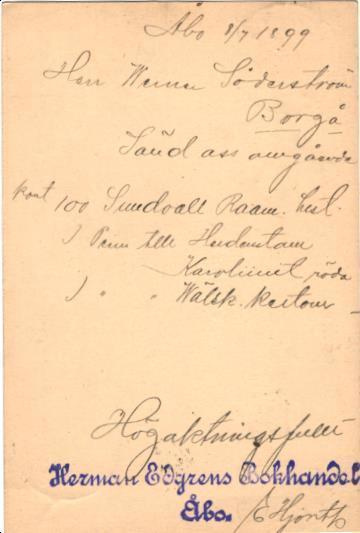 Åbo 8/7 1899
Herr Werner Söderström
Borgå
Sänd oss omgående
kont 100 Sundvall Raam. hist.
1 Heidenstam
Karolinit röda
1 " " Wälsk.
Högaktningsfullt
Herman Edgrens Bokhandel
Åbo. /E Hjorth